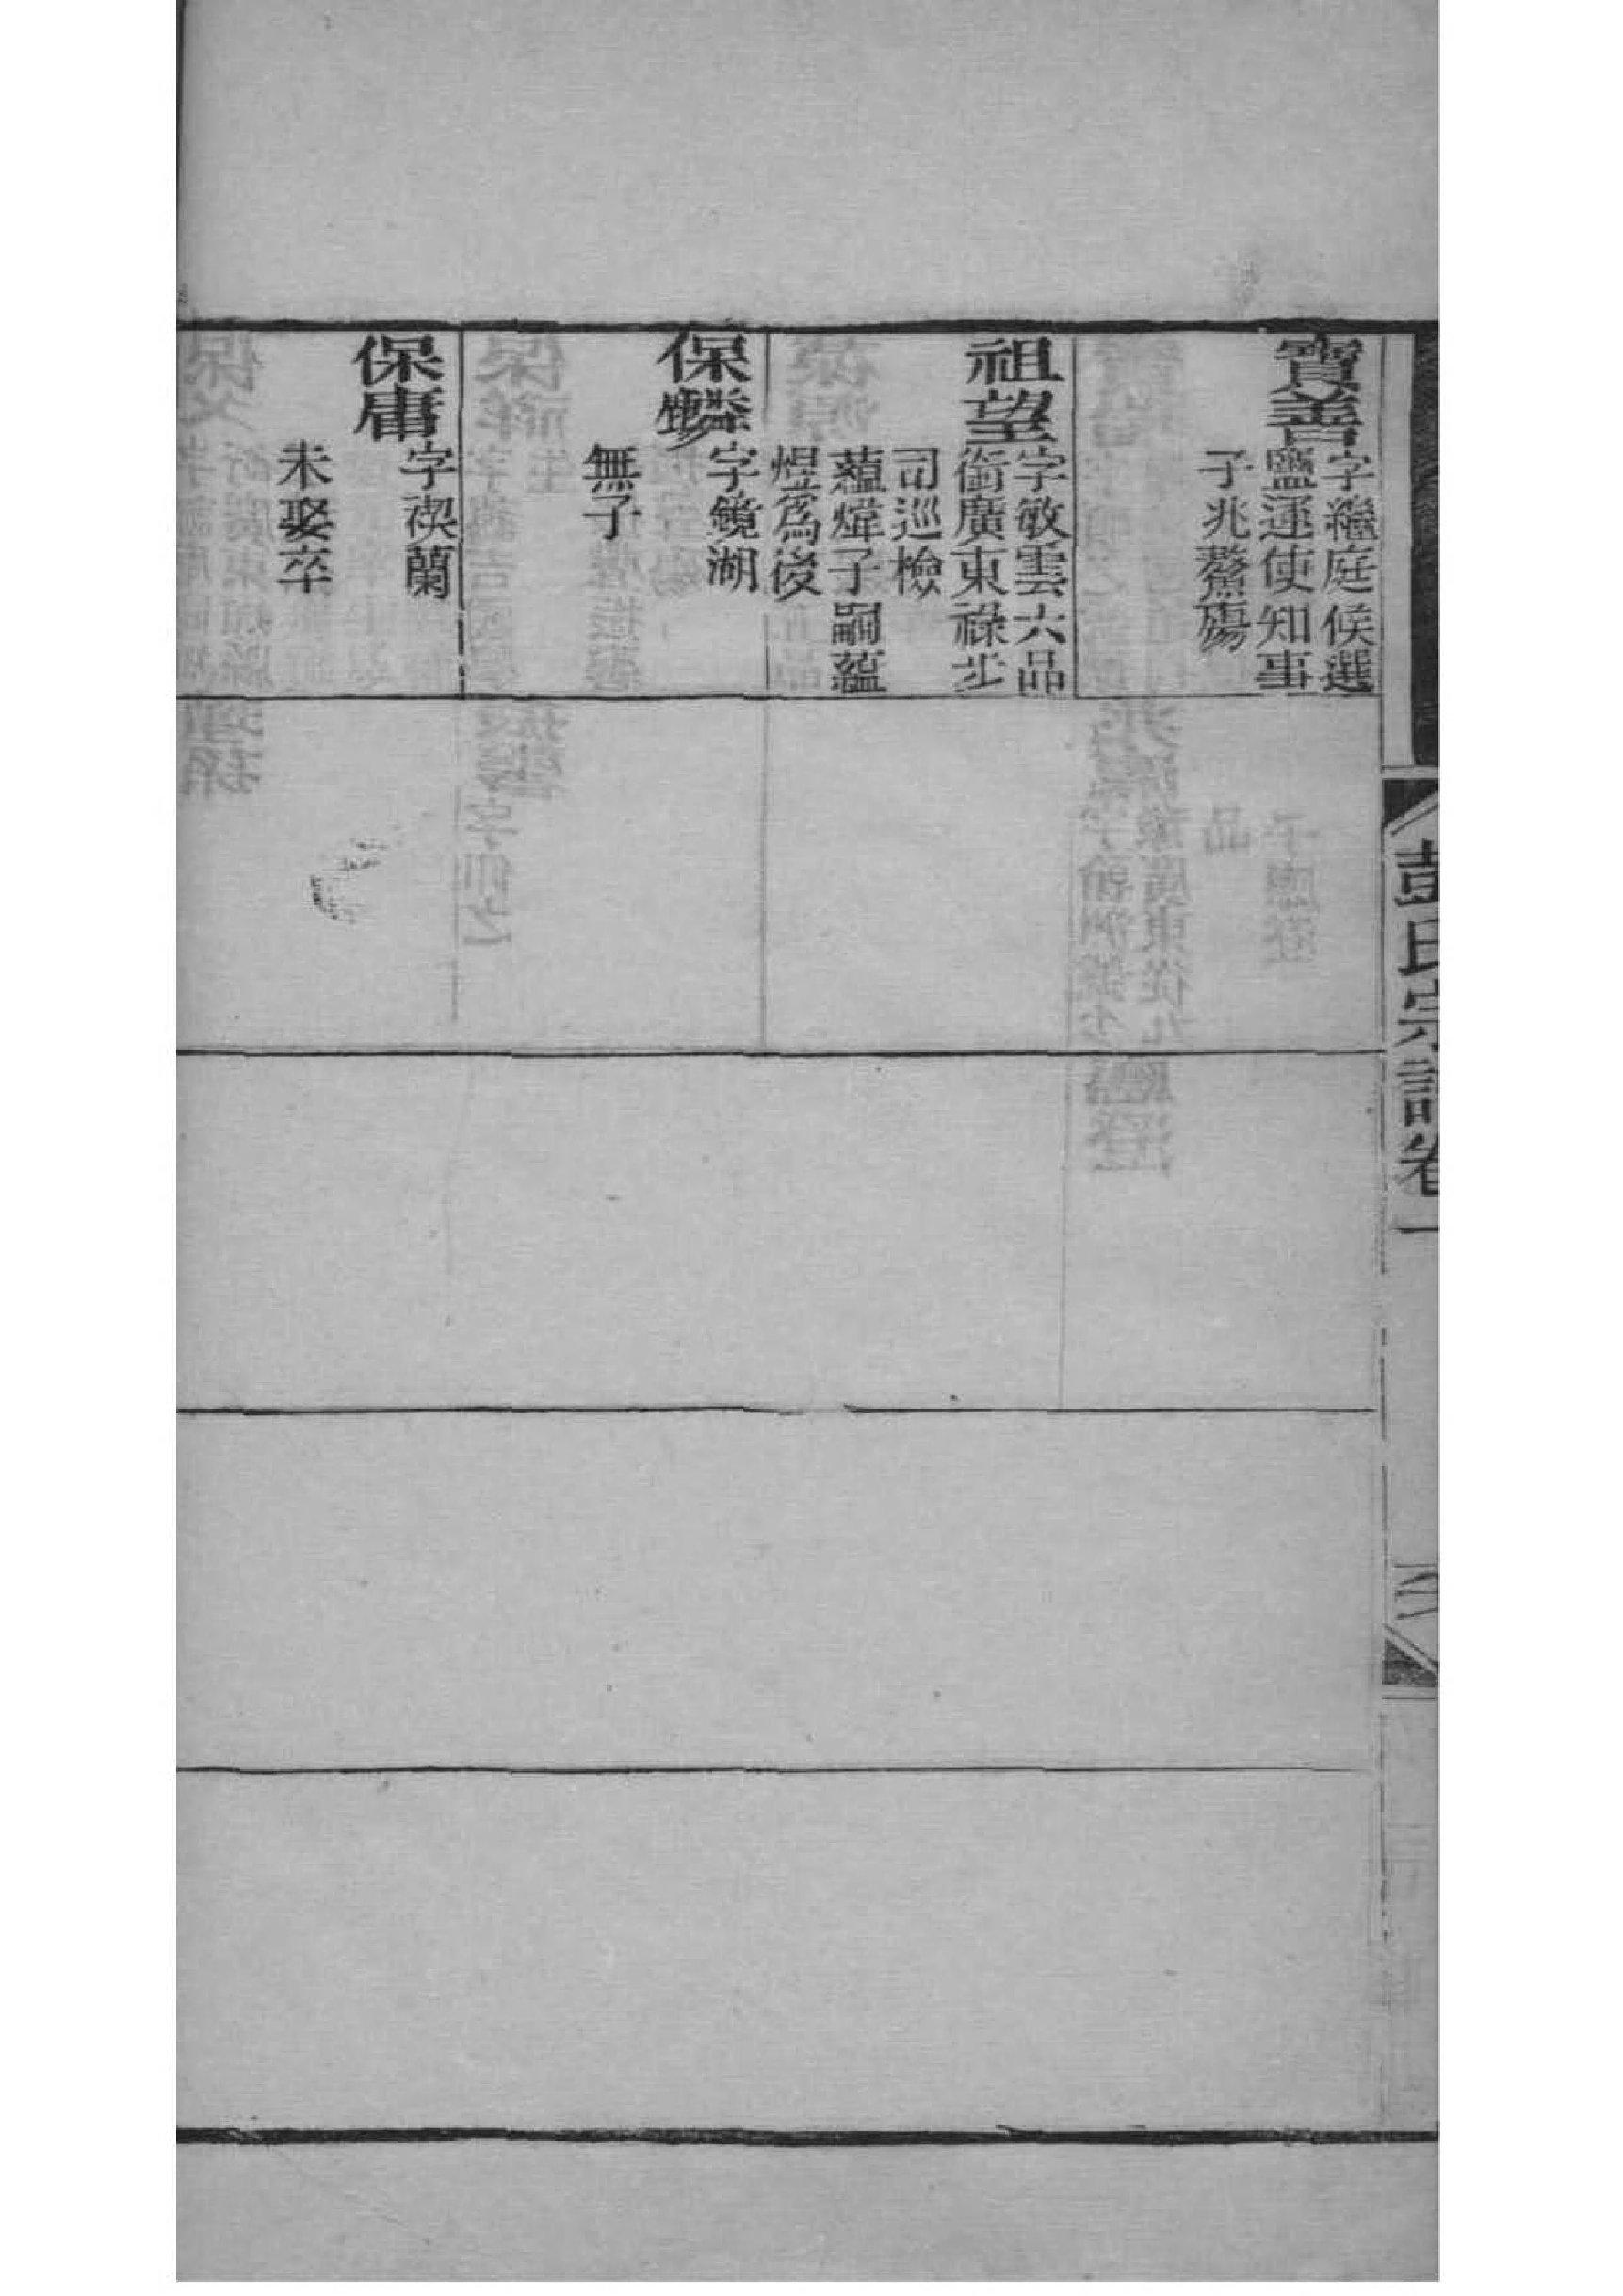 彭氏宗譜卷一
寶善
字繼庭候選
鹽運使知事
子兆鰲殤
祖望
字敏雲六品
銜廣東祿步
司巡檢
蘊煒子嗣蘊
煜爲後
保麟
字鏡湖
無子
保庸
字禊蘭
未娶卒